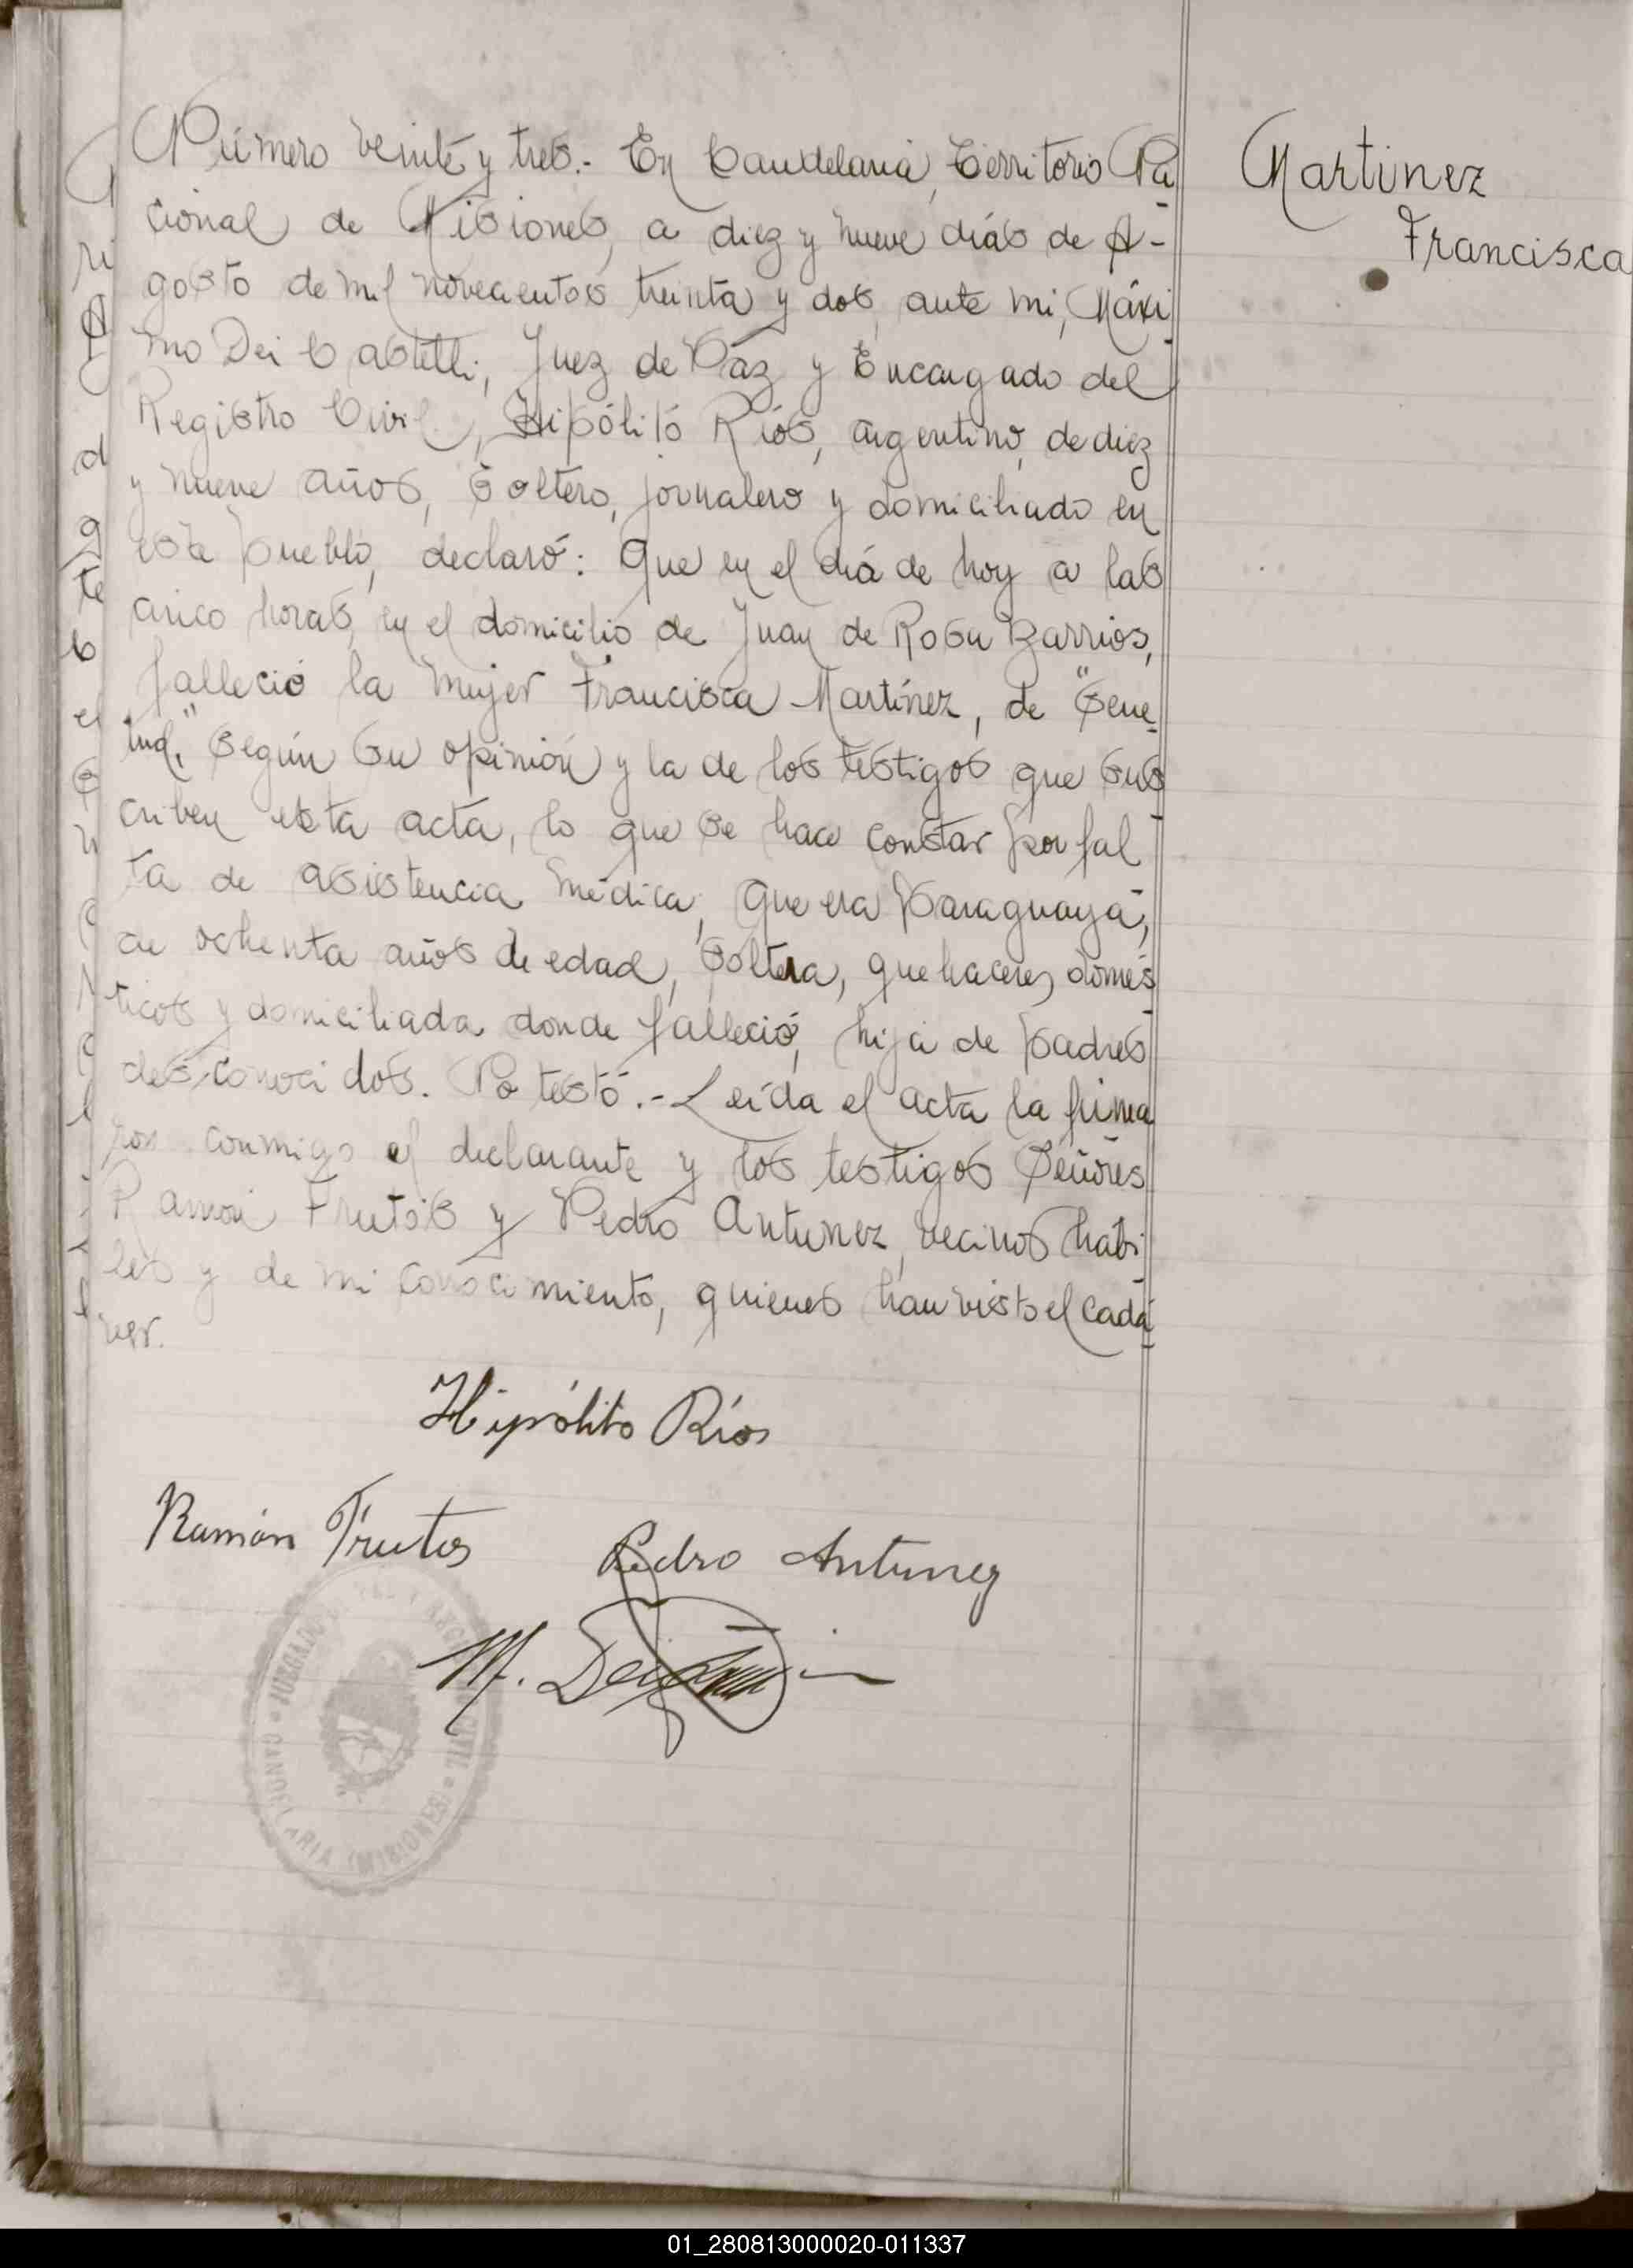 Número veinte y tres.- En Candelaria, Territorio Na-
cional de Misiones, a diez y nueve días de A-
gosto de mil novecientos treinta y dos, ante mi, Máxi-
mo Dei Castelli, Juez de Paz y Encargado del
Registro Civil, Hipólito Ríos, argentino, de diez
y nueve años, soltero, jornalero y domiciliado en
este pueblo, declaró: Que en el día de hoy a las
cinco horas, en el domicilio de Juan de Rosa Barrios,
falleció la mujer Francisca Martínez, de "Sene-
tud," según su opinión y la de los testigos que sus-
criben esta acta, lo que se hace constar por fal-
ta de asistencia médica; Que era paraguaya,
de ochenta años de edad, soltera, quehaceres domés-
ticos y domiciliada donde falleció, hija de padres
desconocidos. No testó.- Leída el acta la firma-
ron conmigo el declarante y los testigos Señores
Ramón Frutos y Pedro Antunez, vecinos hábi-
les y de mi conocimiento, quienes han visto el cadá-
ver.
Martinez
Francisca
Hipólito Ríos
Ramón Frutos Pedro Antunez
M. Dei
JUZGADO DE CIVIL
CANDELARIA (MISIONES)
01_280813000020-011337